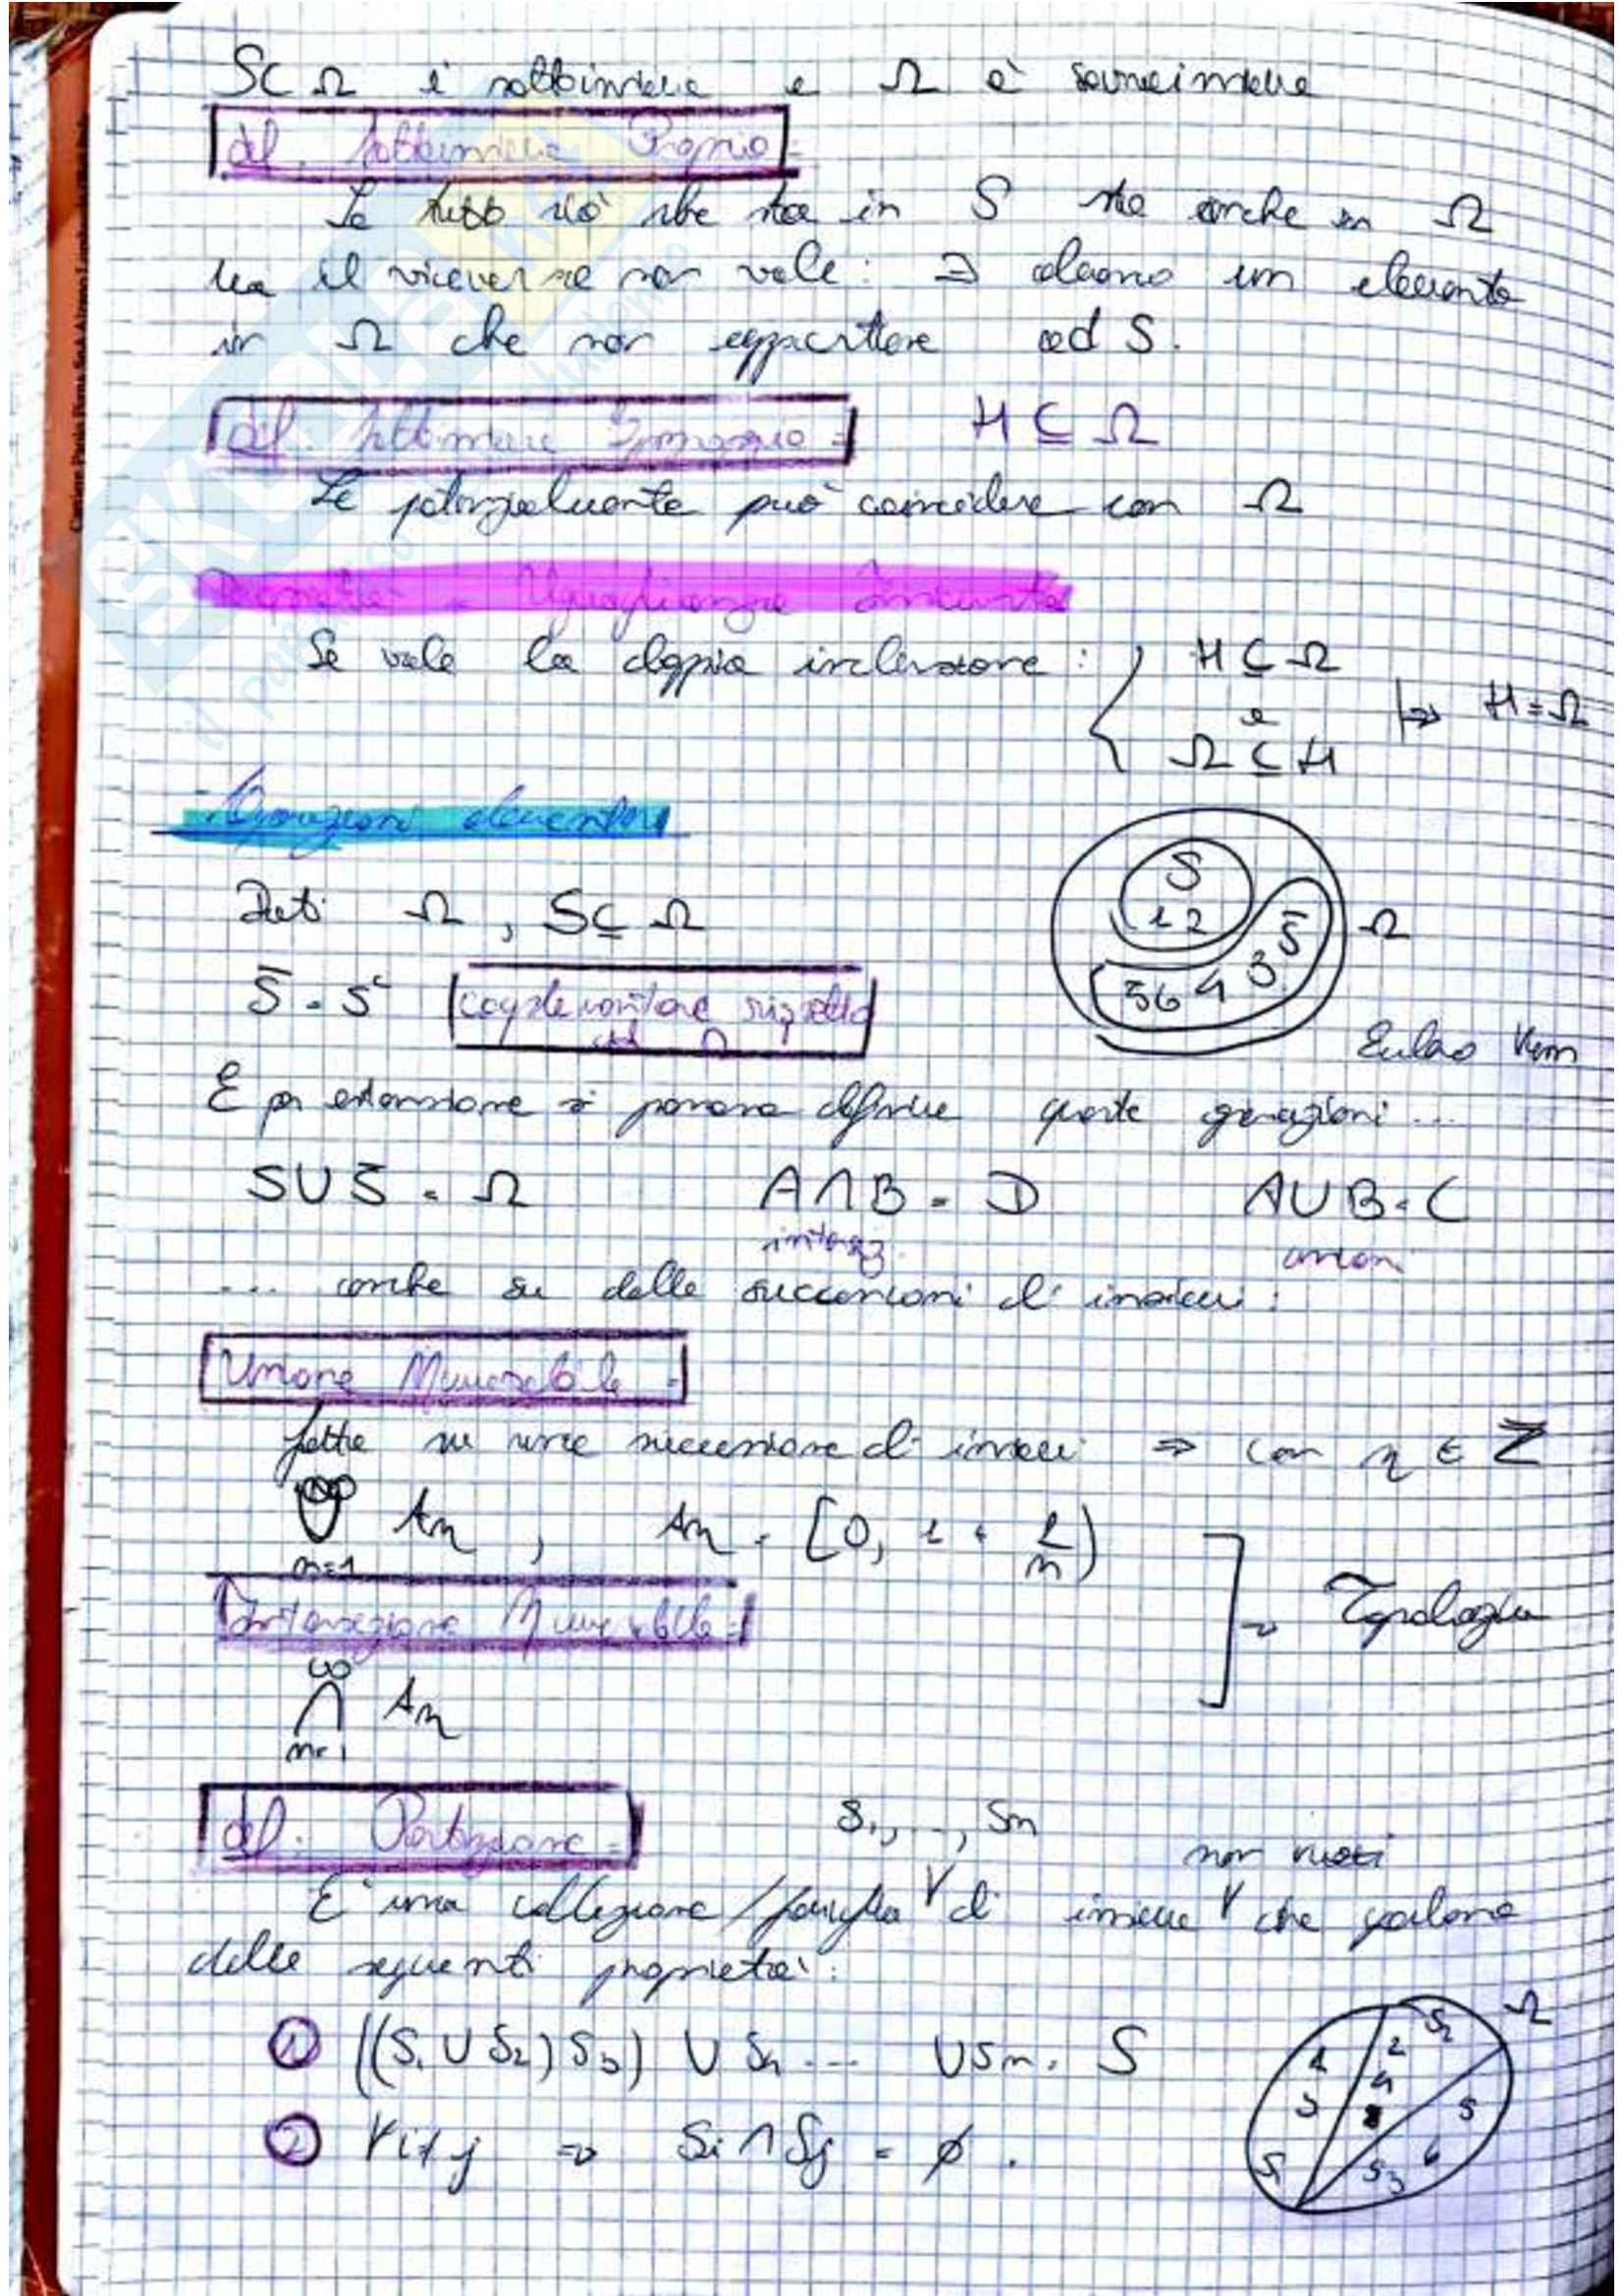 S⊂Ω è sottoinsieme e Ω è sovrainsieme
def. Sottoinsieme Proprio =
Se tutto ciò che sta in S sta anche in Ω
ma il viceversa non vale: ∃ almeno un elemento
in Ω che non appartiene ad S.
def. Sottoinsieme Improprio = H ⊆ Ω
Se potenzialmente può coincidere con Ω
Proprietà = Uguaglianza Insiemi
Se vale la doppia inclusione : { H ⊆ Ω
e ⇒ H = Ω
Ω ⊆ H
Operazioni elementari
Dati Ω , S⊆ Ω
S
1 2
S̅
3
4
56
Ω
S̅ = Sᶜ complementare rispetto
ad Ω
Eulero Venn
E per estensione si possono definire queste operazioni ...
S∪S̅ = Ω A∩B = D A∪B = C
intersez. union
... anche su delle successioni di insiemi :
Unione Numerabile =
fatta su una successione di insiemi ⇒ con n ∈ Z
∞
∪ An , An = [0, 1 + 1/n)
n=1
Intersezione Numerabile =
→ Topologia
∞
∩ An
n=1
def. Partizione = S₁, ..., Sn
non vuoti
E' una collezione / famiglia di insiemi che godono
delle seguenti proprietà:
① ((S₁ ∪ S₂) S₃) ∪ S₄ ... ∪ Sn = S
② ∀ i≠j ⇒ Si ∩ Sj = ∅ .
Ω
S₂
2
4
S₁
S₃ 6
SKUOLA
il paradiso dello studente